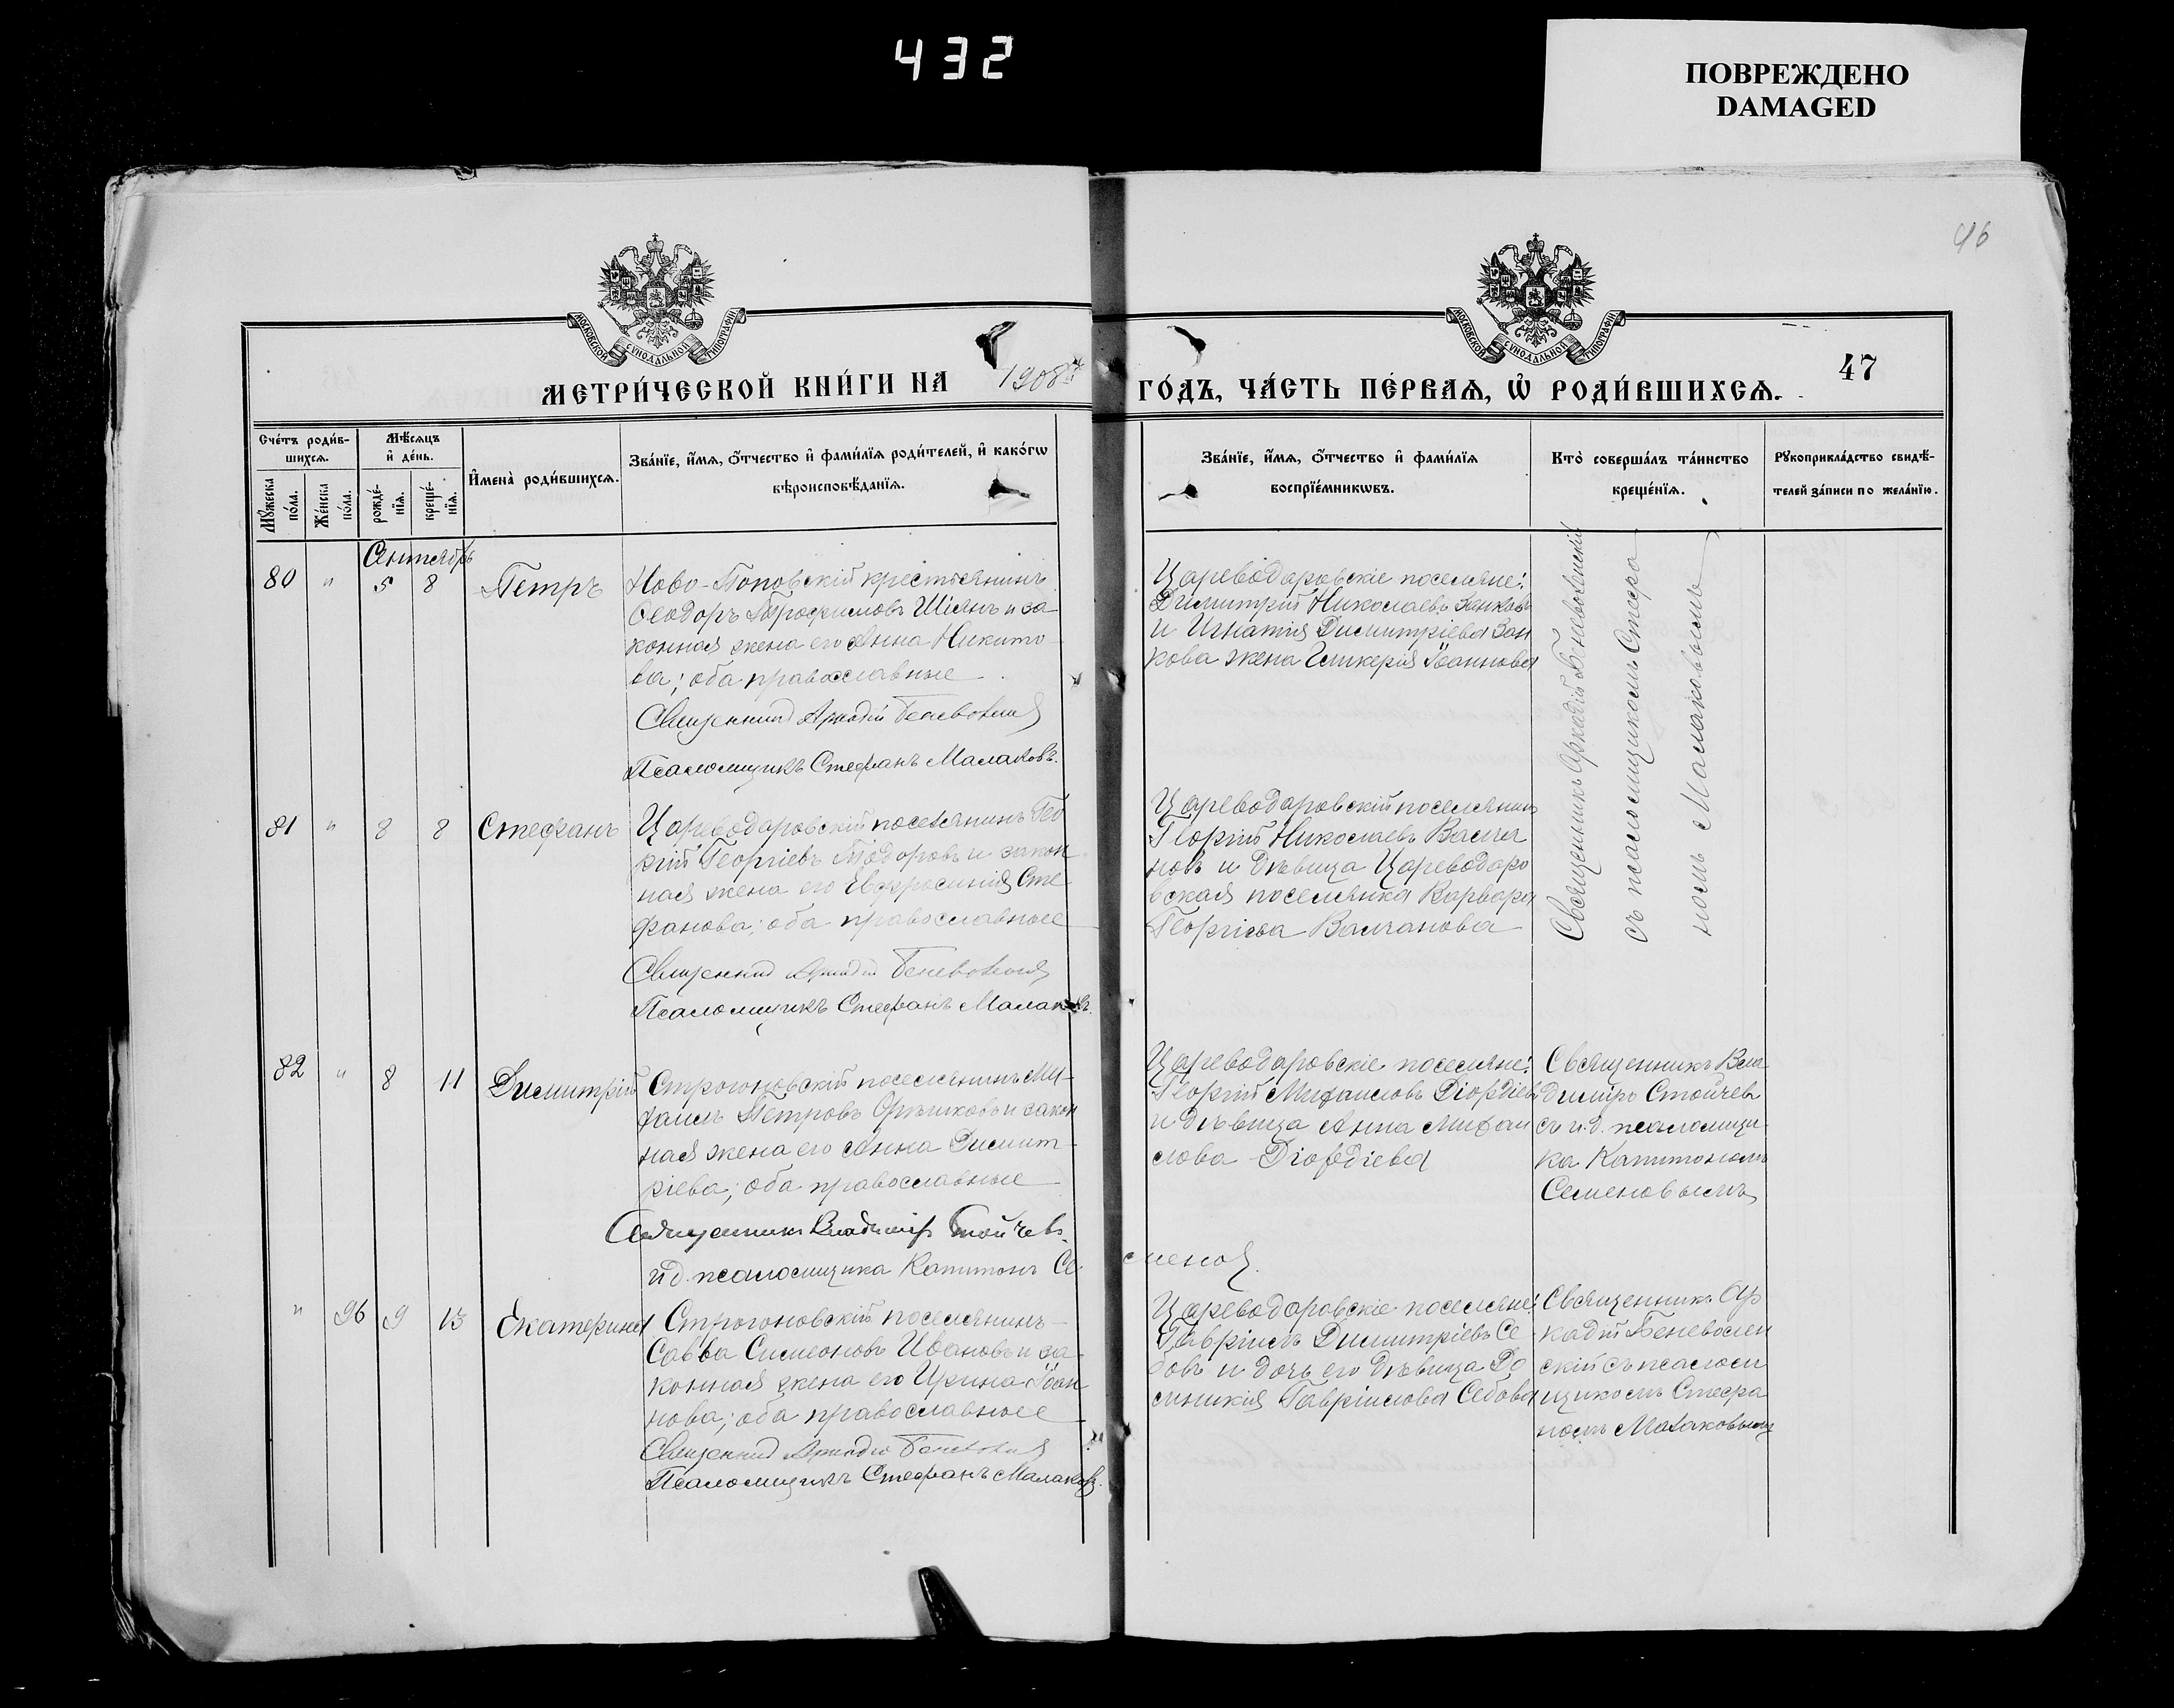 432
ПОВРЕЖДЕНО
DAMAGED
46
МОСКОВСКОЙ СѴНОДАЛЬНОЙ ТИПОГРАФІИ
МОСКОВСКОЙ СѴНОДАЛЬНОЙ ТИПОГРАФІИ
МЕТРИ́ЧЕСКОЙ КНИ́ГИ НА 1908й
ГО́ДЪ, ЧА́СТЬ ПЕ́РВАѦ, Ѽ РОДИ́ВШИХСѦ.
47
Сче́тъ роди́в-
шихсѧ.
Мѣ́сѧцъ
и҆ де́нь.
Мꙋ́жеска
по́ла.
Же́нска
по́ла.
рожде́-
нїѧ.
креще́-
нїѧ.
И҆мена̀ роди́вшихсѧ.
Зва́нїе, и҆́мѧ, ѻ҆́тчество и҆ фами́лїѧ роди́телей, и҆ како́гѡ
вѣроисповѣ́данїѧ.
Зва́нїе, и҆́мѧ, ѻ҆́тчество и҆ фами́лїѧ
воспрїе́мникѡвъ.
Кто̀ соверша́лъ та́инство
креще́нїѧ.
Рꙋкоприкла́дство свидѣ́-
телей за́писи по жела́нїю.
Сентябрь
80 " 5 8 Петръ
Ново-Поповскій крестьянинъ
Ѳеодоръ Трофимовъ Шіянъ и за
конная жена его Анна Никито
ва; оба православные
Священникъ Аркадій Беневоленскій
Псаломщикъ Стефанъ Малаковъ.
Цареводаровскіе поселяне:
Димитрій Николаевъ Занковъ
и Игнатія Димитріева Зан
кова жена Гликерія Іоаннова
Священникъ Аркадій Беневоленскій
съ псаломщикомъ Стефа
номъ Малаковымъ
81 " 8 8 Стефанъ
Цареводаровскій поселянинъ Гео
ргій Георгіевъ Тодоровъ и закон
ная жена его Евфросинія Сте
фанова; оба православные
Священникъ Аркадій Беневоленскій
Псаломщикъ Стефанъ Малаковъ.
Цареводаровскій поселянинъ
Георгій Николаевъ Валча
новъ и дѣвица Цареводаро
вская поселянка Варвара
Георгіева Валчанова
82 " 8 11 Димитрій
Строгоновскій поселянинъ Ми-
хаилъ Петровъ Орѣшковъ и закон
ная жена его Анна Димит-
ріева; оба православные
Священникъ Владиміръ Стойчевъ.
и д. псаломщика Капитонъ Се
меновъ.
Цареводаровскіе поселяне:
Георгій Михаиловъ Діордіевъ
и дѣвица Анна Михаи
лова Діордіева
Священникъ Вла
диміръ Стойчевъ
съ и.д. псаломщи
ка Капитономъ
Семеновымъ
" 96 9 13 Екатерина
Строгоновскій поселянинъ
Савва Симеоновъ Ивановъ и за
конная жена его Ирина Іоан
нова; оба православные
Священникъ Аркадій Беневоленскій
Псаломщикъ Стефанъ Малаковъ.
Цареводаровскіе поселяне:
Гавріилъ Димитріевъ Се
бовъ и дочь его дѣвица До
мникія Гавріилова Себова
Священникъ Ар
кадій Беневолен
скій съ псалом
щикомъ Стефа
номъ Малаковымъ